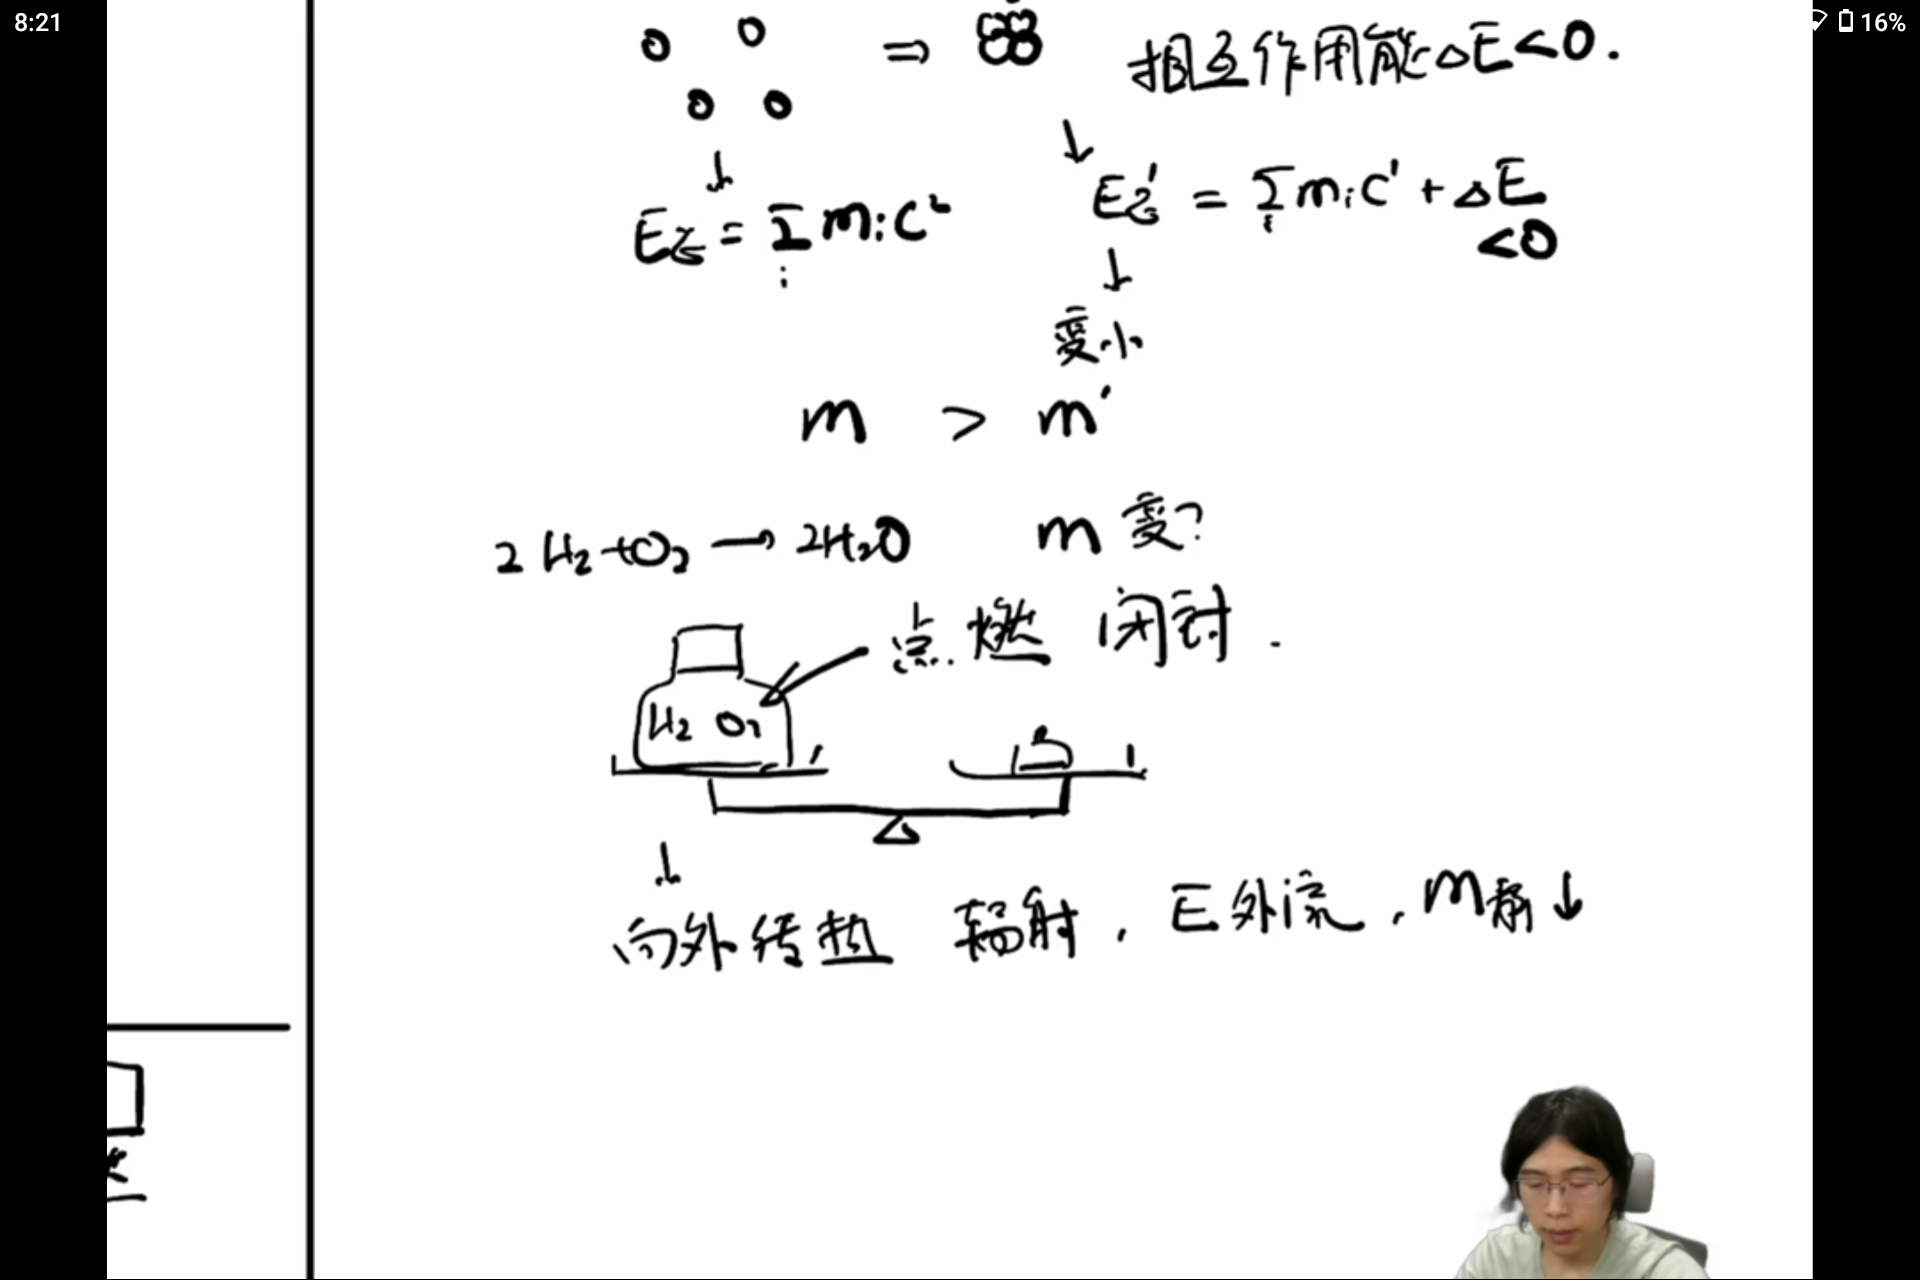 8:21
16%
⇒ 相互作用能 ΔE<0.
↓ ↓
E总 = Σ_i m_i c² E总' = Σ_i m_i c' + ΔE
<0
↓
变小
m > m'
2H₂+O₂ → 2H₂O m变?
点燃 闭封.
H₂ O₂
↓
向外传热 辐射, E外流, m静↓